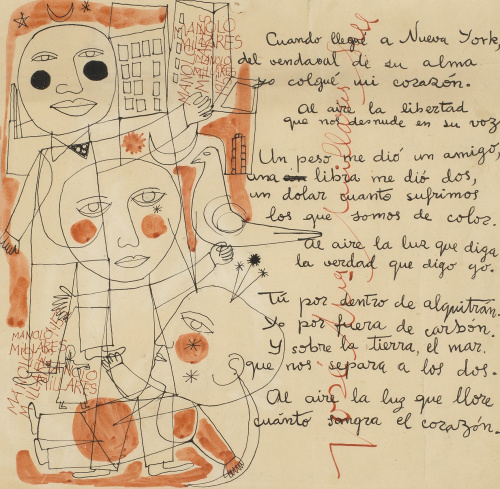 MANOLO
MILLARES
MANOLO
MILLARES
Cuando llegué a Nueva York,
del vendaval de su alma
yo colgué mi corazón.
Al aire la libertad
que nos desnude en su voz
Un peso me dió un amigo,
una libra me dió dos,
un dolar cuanto sufrimos
los que somos de color.
Al aire la luz que diga
la verdad que digo yo.
Tú por dentro de alquitrán.
Yo por fuera de carbón.
Y sobre la tierra, el mar.
que nos separa a los dos.
Al aire la luz que llore
cuánto sangra el corazón.
MANOLO
MILLARES
MANOLO
MILLARES